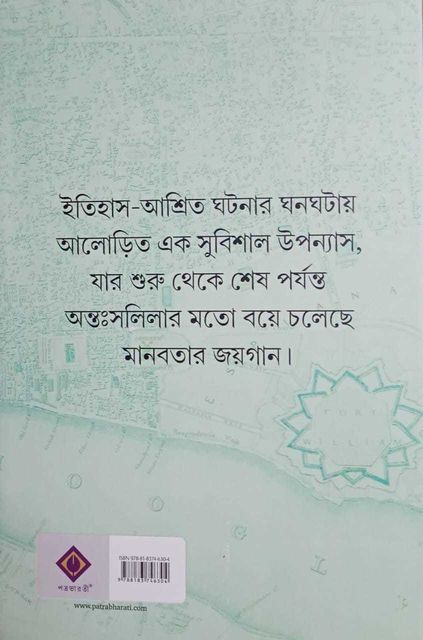 ইতিহাস-আশ্রিত ঘটনার ঘনঘটায়
আলোড়িত এক সুবিশাল উপন্যাস,
যার শুরু থেকে শেষ পর্যন্ত
অন্তঃসলিলার মতো বয়ে চলেছে
মানবতার জয়গান।
FORT
WILLIAM
ISBN 978-81-8374-630-4
9788183746304
পত্রভারতী®
www.patrabharati.com